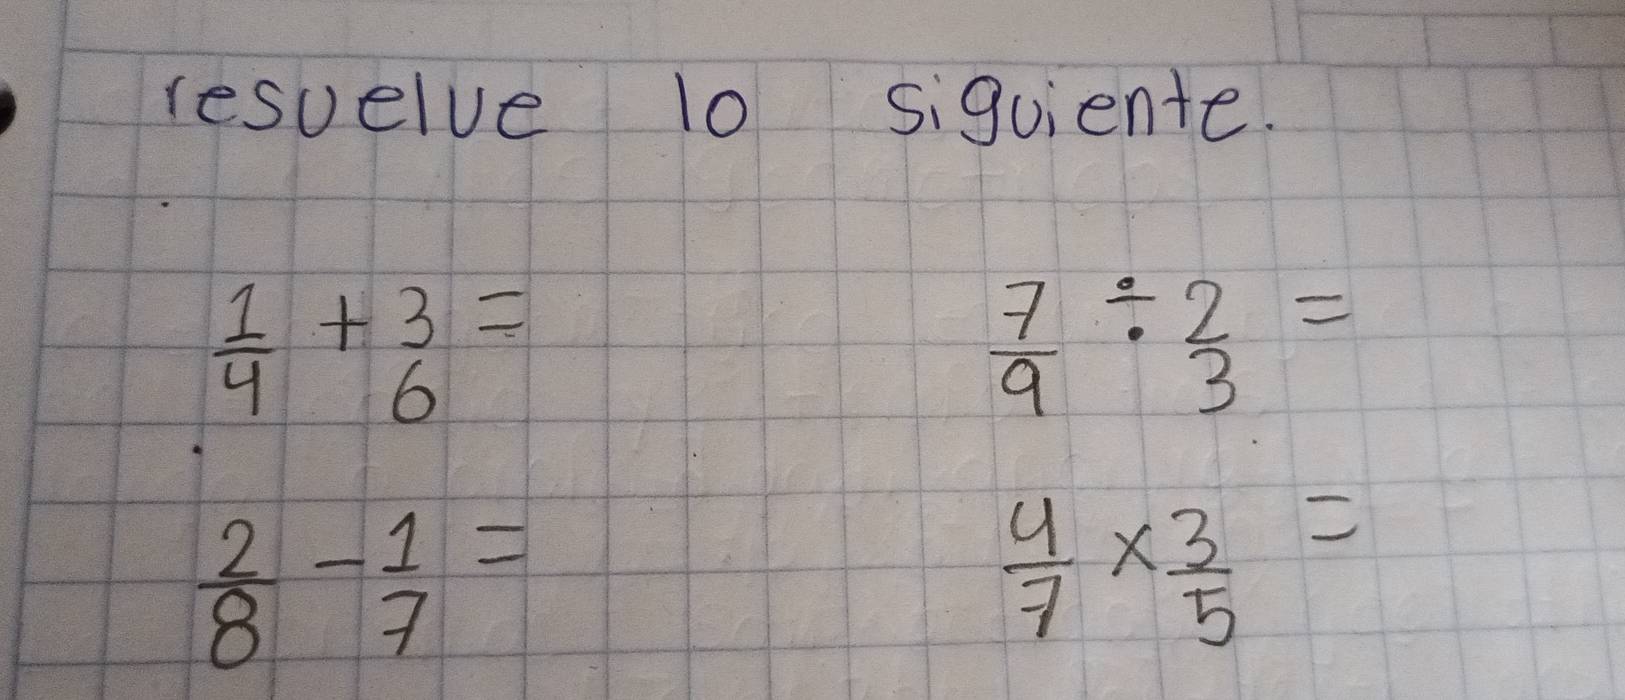 resuelve lo siguiente.
1/4 + 3/6 =    7/9 ÷ 2/3 =
2/8 - 1/7 =    4/7 × 3/5 =